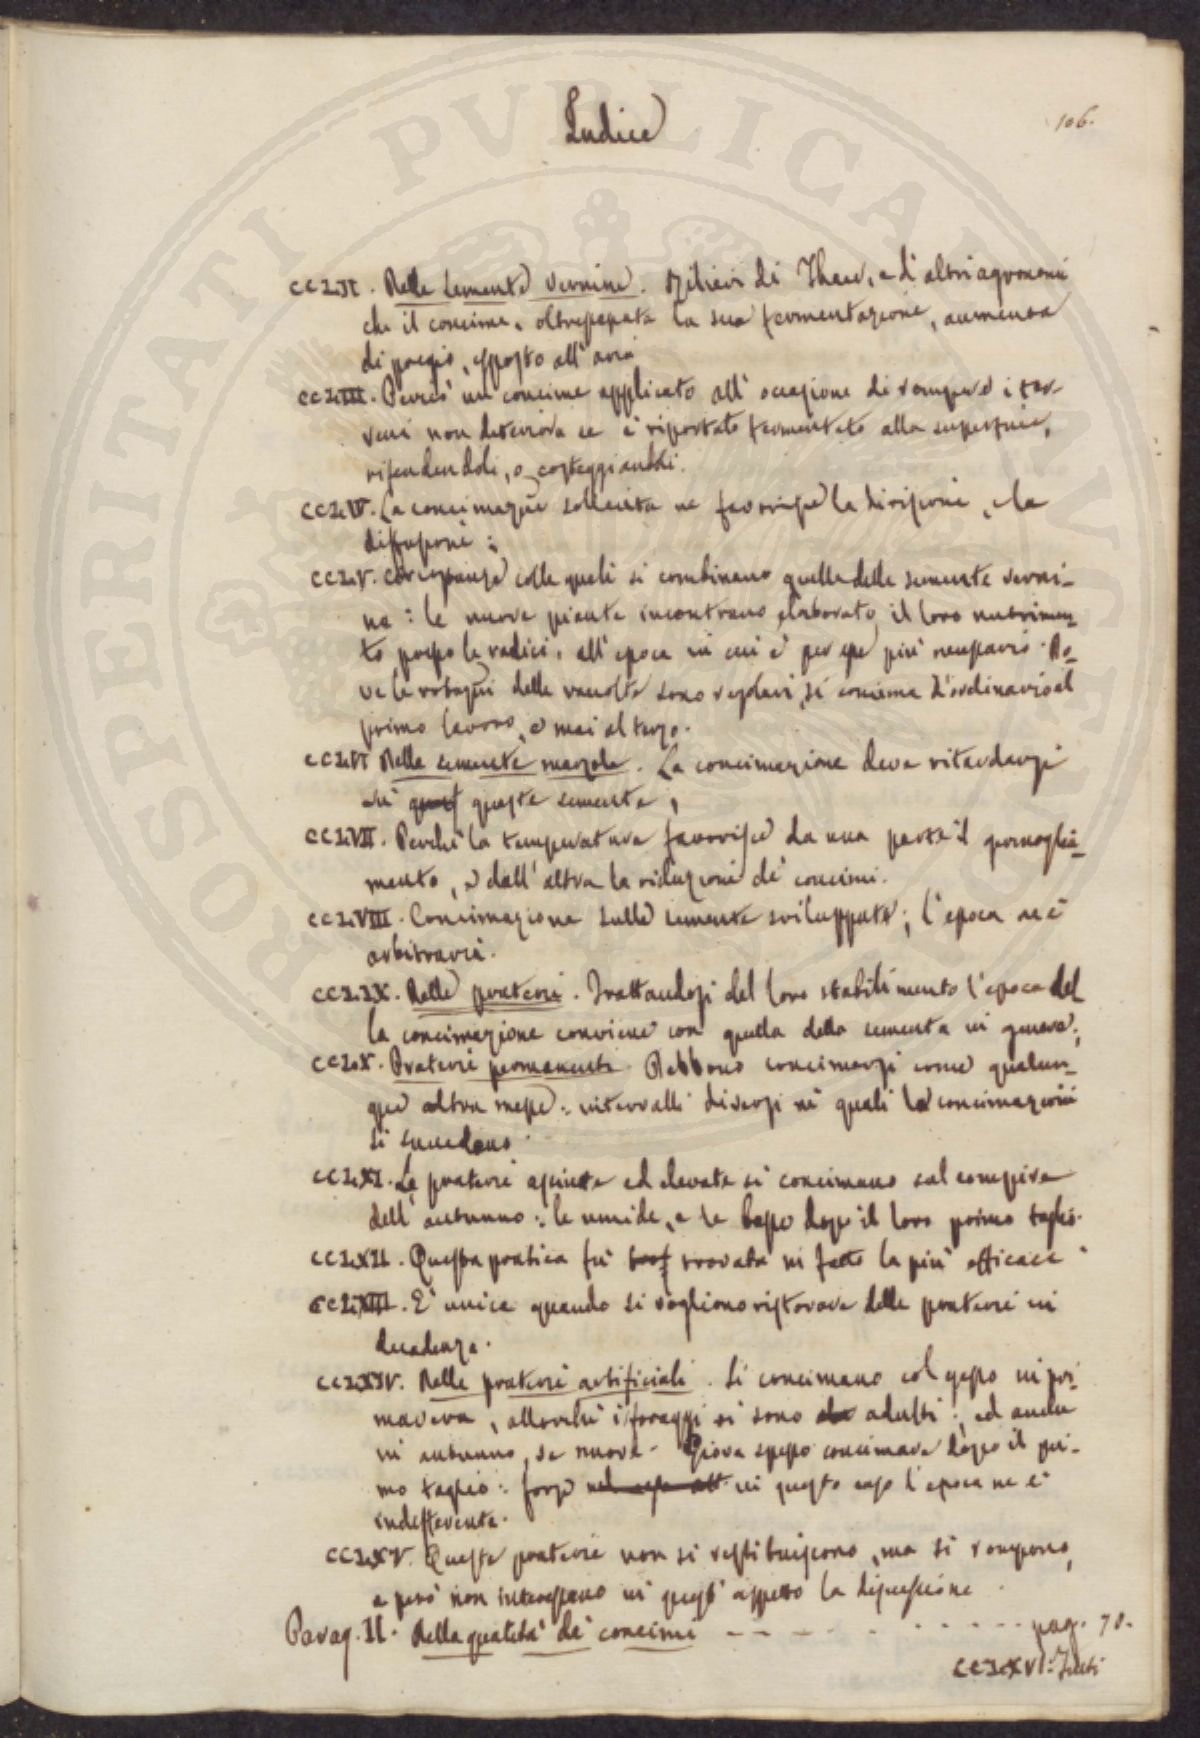 Indice
106.
CCLII. Nelle semente vernine. Rilievi di Thaer, e d'altri agronomi
che il concime, oltrepassata la sua fermentazione, aumenta
di pregio, esposto all'aria
CCLIII. Perciò un concime applicato all'occasione di rompere i ter-
reni non deteriora se è riportato fermentato alla superficie,
rifendendoli, o costeggiandoli.
CCLIV. La concimazne sollecita ne favorisce la divisione, e la
diffusione:
CCLV. circostanze colle quali si combinano quelle delle semente verni-
ne: le nuove piante incontrano elaborato il loro nutrimen-
to presso le radici, all'epoca in cui è per esse più necessario. Do-
ve le rotazni delle raccolte sono regolari, si concima d'ordinario al
primo lavoro, e mai al terzo.
CCLVI Nelle semente marzole. La concimazione deve ritardarsi
in queste semente,
CCLVII. Perchè la temperatura favorisce da una parte il germoglia-
mento, e dall'altra la riduzione de' concimi.
CCLVIII. Concimazione sulle semente sviluppate; l'epoca ne è
arbitraria.
CCLIX. Nelle praterie. Trattandosi del loro stabilimento l'epoca del
la concimazione conviene con quella della sementa in genere;
CCLX. Praterie permanenti. Debbono concimarsi come qualun-
que altra messe: intervalli diversi ne' quali le concimazioni
si succedono.
CCLXI. Le praterie asciutte ed elevate si concimano sul compire
dell'autunno: le umide, e le basse dopo il loro primo taglio.
CCLXII. Questa pratica fu trovata in fatto la più efficace
CCLXIII. E' unica quando si vogliono ristorare delle praterie in
decadenza.
CCLXIV. Nelle praterie artificiali. Si concimano col gesso in pri-
mavera, allorchè i foraggi si sono adulti; ed anche
in autunno, se nuove. Giova spesso concimare dopo il pri-
mo taglio: forse in questo caso l'epoca ne è
indifferente.
CCLXV. Queste praterie non si restituiscono, ma si rompono,
e però non interessano in quest'aspetto la discussione.
Parag. II. Della quantità de' concimi - - - . . . . . . pag. 70.
CCLXVI. Tutti